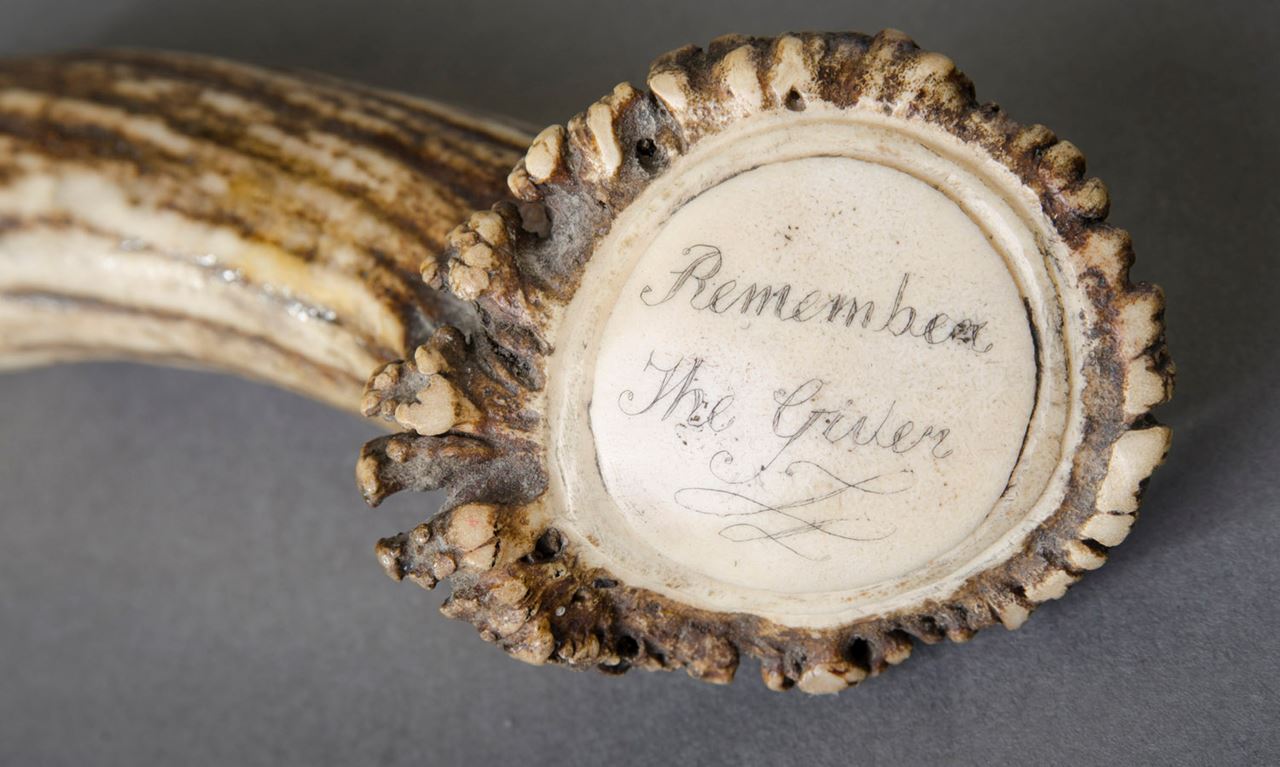 Remember
The Giver